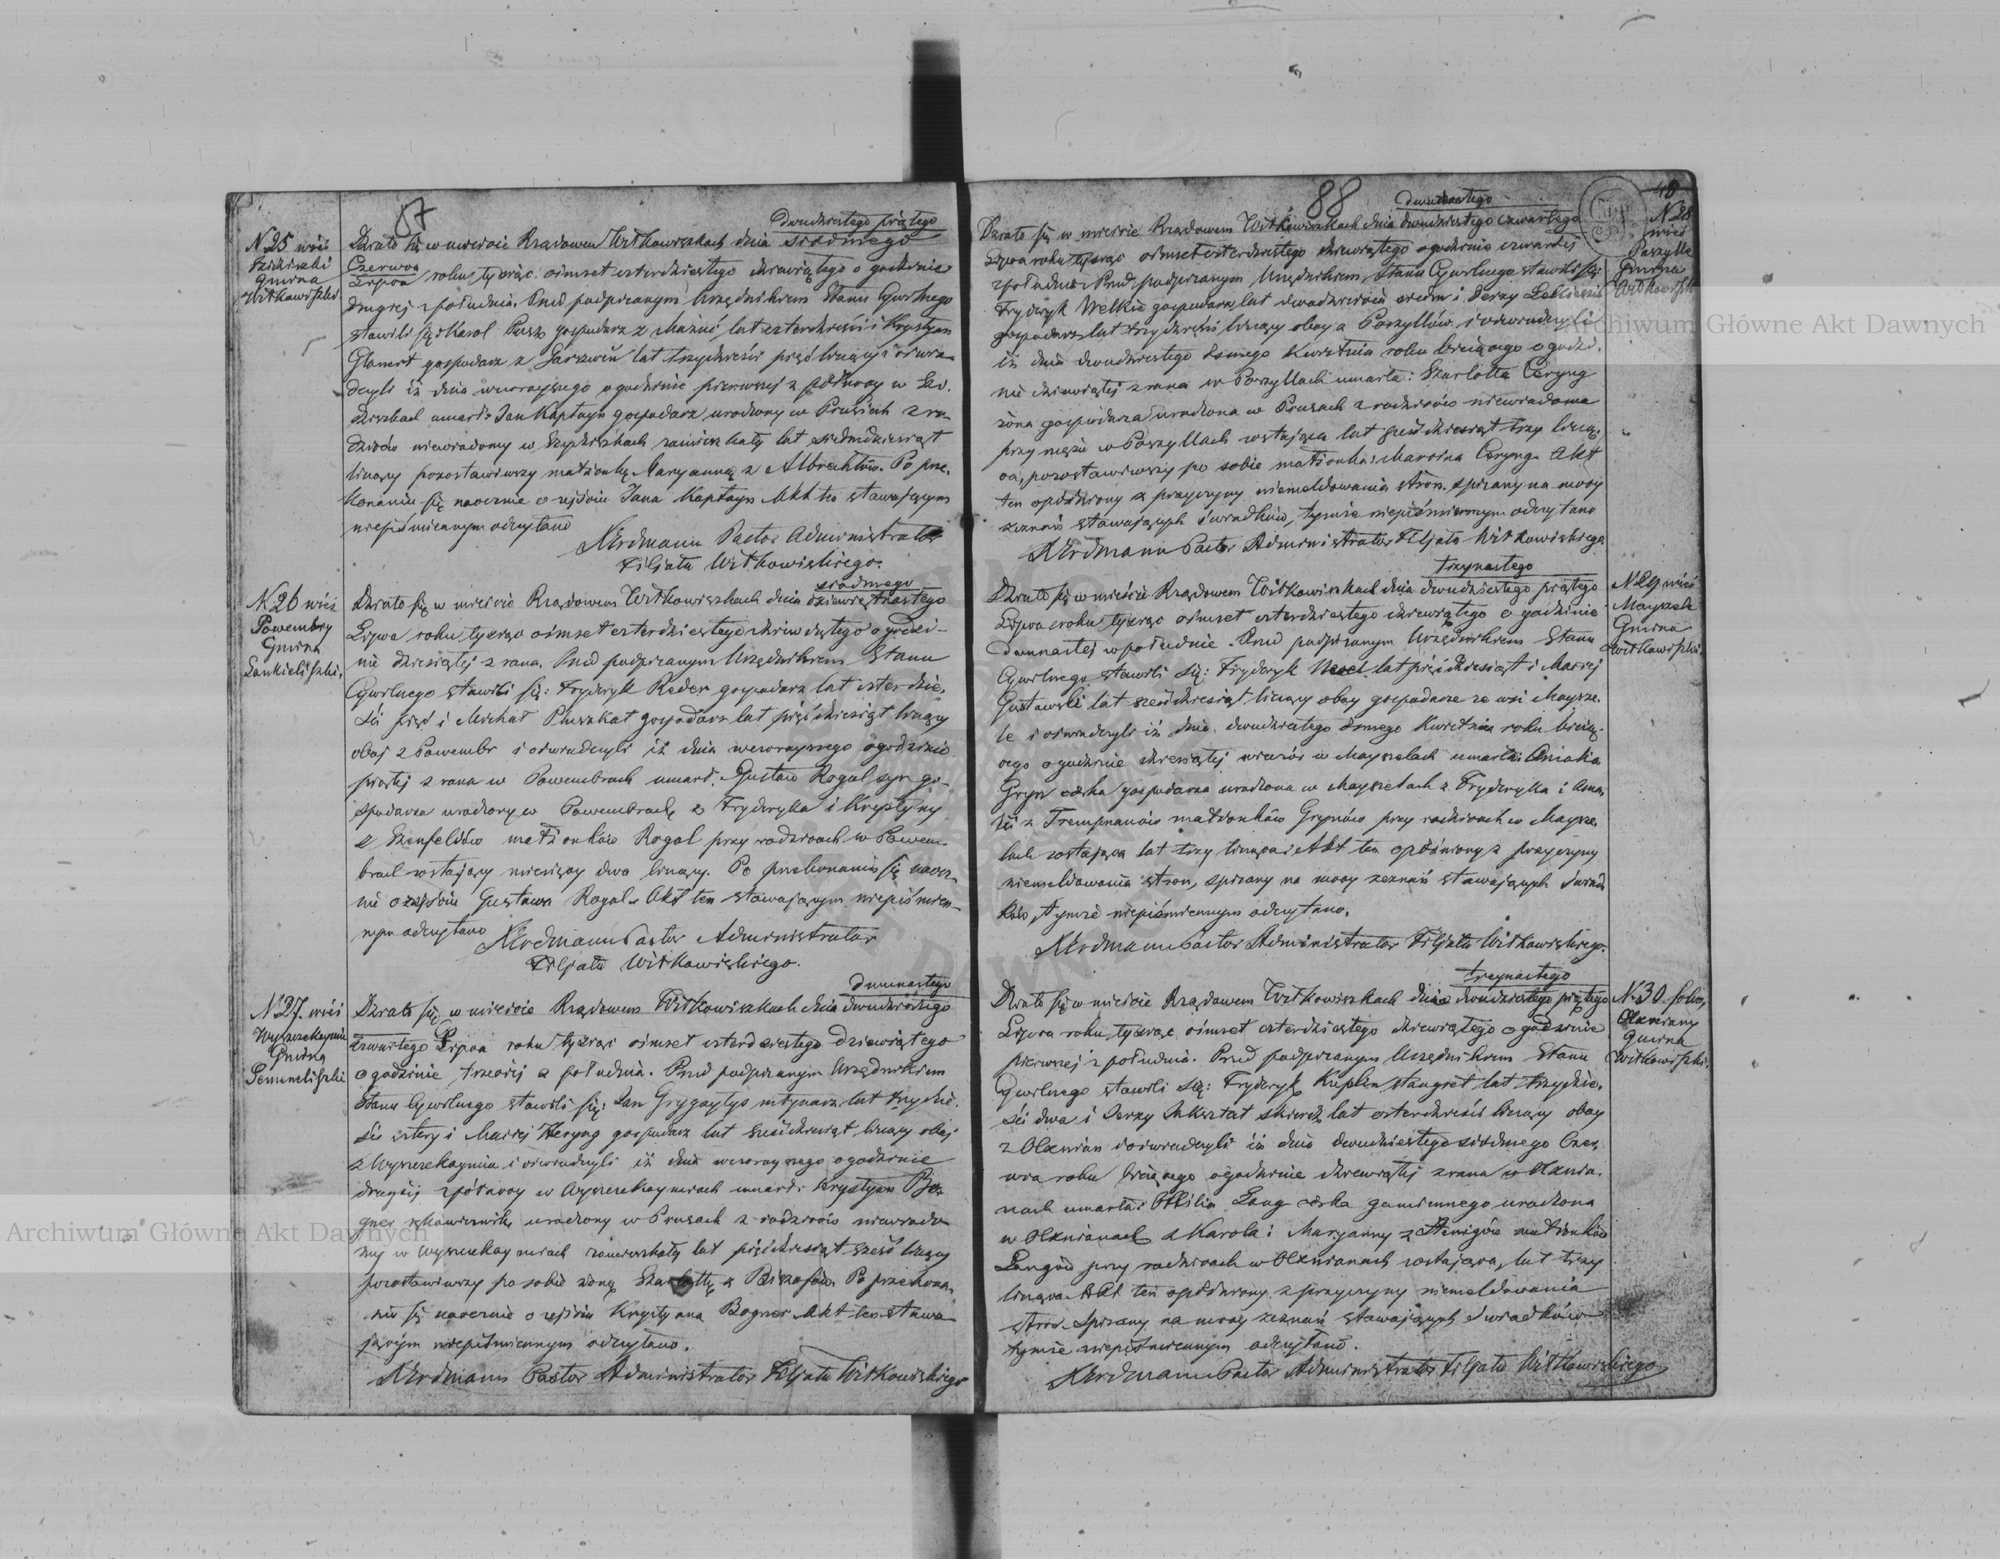 87
N 25 wieś
Gmina
Witkowiszki
dwudziestego piątego
Działo się w mieście Rządowem Witkowiszkach dnia siódmego
Czerwca
Lipca roku tysiąc ośmset czterdziestego dziewiątego o godzinie
drugiej z południa. Przed podpisanym Urzędnikiem Stanu Cywilnego
stawili się Karol gospodarz z lat czterdzieści i Krystyan
gospodarz z lat trzydzieści pięć liczący i oświad-
czyli iż dnia wczorayszego o godzinie pierwszej z północy w
umarł: Jan Kaptayn gospodarz urodzony w Prusach z ro-
dziców niewiadomy w zamieszkały lat siedmdziesiąt
liczący pozostawiwszy małżonkę Maryannę z Albrechtów. Po prze-
konaniu się naocznie o zejściu Jana Kaptayn Akt ten stawającym
niepiśmiennym odczytano
NErdmann Pastor Administrator
Filjału Witkowiskiego.
N 26 wieś
Powembry
Gmina
Lankieliszki.
siódmego
Działo się w mieście Rządowem Witkowiszkach dnia dziewiętnastego
Lipca roku tysiąc ośmset czterdziestego dziewiątego o godzi-
nie dziesiątej z rana. Przed podpisanym Urzędnikiem Stanu
Cywilnego stawili się: Fryderyk Reder gospodarz lat czterdzie-
ści pięć i Michał Pluszkat gospodarz lat pięćdziesiąt liczący
obaj z Powembr i oświadczyli iż dnia wczorayszego o godzinie
piątej z rana w Powembrach umarł: Gustaw Rogal syn go-
spodarza urodzony w Powembrach z Fryderyka i Krystyny
z Szenfeldów małżonków Rogal przy rodzicach w Powem-
brach zostający miesięcy dwa liczący. Po przekonaniu się naocz-
nie o zejściu Gustawa Rogal Akt ten stawającym niepiśmien-
nym odczytano NErdmann Pastor Administrator
Filjału Witkowiskiego.
N 27. wieś
Gmina
dwunastego
Działo się w mieście Rządowem Witkowiszkach dnia dwudziestego
czwartego Lipca roku tysiąc ośmset czterdziestego dziewiątego
o godzinie trzeciej z południa. Przed podpisanym Urzędnikiem
Stanu Cywilnego stawili się: Jan Grygaytys młynarz lat trzydzie-
ści cztery i Maciej Heryng gospodarz lat sześćdziesiąt liczący obaj
z i oświadczyli iż dnia wczorayszego o godzinie
drugiej z północy w umarł: Krystyan Bog-
ner rękawicznik urodzony w Prusach z rodziców niewiado-
my w zamieszkały lat pięćdziesiąt sześć liczący
pozostawiwszy po sobie żonę Szarlottę z Po przekona-
niu się naocznie o zejściu Krystyana Bogner Akt ten stawa-
jącym niepiśmiennym odczytano.
NErdmann Pastor Administrator Filjału Witkowiskiego
88
48
N 28
wieś
Poszylle
Gmina
Witkowiszki
dwunastego
Działo się w mieście Rządowem Witkowiszkach dnia dwudziestego czwartego
Lipca roku tysiąc ośmset czterdziestego dziewiątego o godzinie czwartej
z południa. Przed podpisanym Urzędnikiem Stanu Cywilnego stawili się:
Fryderyk Welkie gospodarz lat dwadzieścia siedm i Jerzy
gospodarz lat trzydzieści liczący obay z Poszyllów, i oświadczyli
iż dnia dwudziestego ósmego Kwietnia roku bieżącego o godzi-
nie dziewiątej z rana w Poszyllach umarła: Szarlotta Ceryng
żona gospodarza urodzona w Prusach z rodziców niewiadoma
przy mężu w Poszyllach zostająca lat sześćdziesiąt trzy liczą-
ca, pozostawiwszy po sobie małżonka: Marcina Ceryng. Akt
ten opóźniony z przyczyny niemeldowania stron, spisany na mocy
zeznań stawających świadków, tymże niepiśmiennym odczytano
NErdmann Pastor Administrator Filjału Witkowiskiego
N 29 wieś
Mayszele
Gmina
Witkowiszki.
trzynastego
Działo się w mieście Rządowem Witkowiszkach dnia dwudziestego piątego
Lipca roku tysiąc ośmset czterdziestego dziewiątego o godzinie
dwunastej w południe. Przed podpisanym Urzędnikiem Stanu
Cywilnego stawili się: Fryderyk lat pięćdziesiąt i Maciej
Gustawski lat sześćdziesiąt liczący obay gospodarze ze wsi Maysze-
le i oświadczyli iż dnia dwudziestego ósmego Kwietnia roku bieżą-
cego o godzinie dziesiątej wieczór w Mayszelach umarła:
Gryn córka gospodarza urodzona w Mayszelach z Fryderyka i
z Trempnanów małżonków Grynów przy rodzicach w Maysze-
lach zostająca lat trzy licząca: Akt ten opóźniony z przyczyny
niemeldowania stron, spisany na mocy zeznań stawających świad-
ków, tymże niepiśmiennym odczytano.
NErdmann Pastor Administrator Filjału Witkowiskiego.
N. 30. folw.
Olxniany
Gmina
Witkowiszki.
trzynastego
Działo się w mieście Rządowem Witkowiszkach dnia dwudziestego piątego
Lipca roku tysiąc ośmset czterdziestego dziewiątego o godzinie
pierwszej z południa. Przed podpisanym Urzędnikiem Stanu
Cywilnego stawili się: Fryderyk Kieplin stangret lat trzydzie-
ści dwa i Jerzy lat czterdzieści liczący obay
z Olxnian i oświadczyli iż dnia dwudziestego siódmego Czer-
wca roku bieżącego o godzinie dziewiątej z rana w Olxnia-
nach umarła: Ottilia Lang córka urodzona
w Olxnianach z Karola i Maryanny z Henigów małżonków
Langów przy rodzicach w Olxnianach zostająca, lat trzy
licząca. Akt ten opóźniony z przyczyny niemeldowania
stron. Spisany na mocy zeznań stawających świadków
tymże niepiśmiennym odczytano.
NErdmann Pastor Administrator Filjału Witkowiskiego
Archiwum Główne Akt Dawnych
Archiwum Główne Akt Dawnych